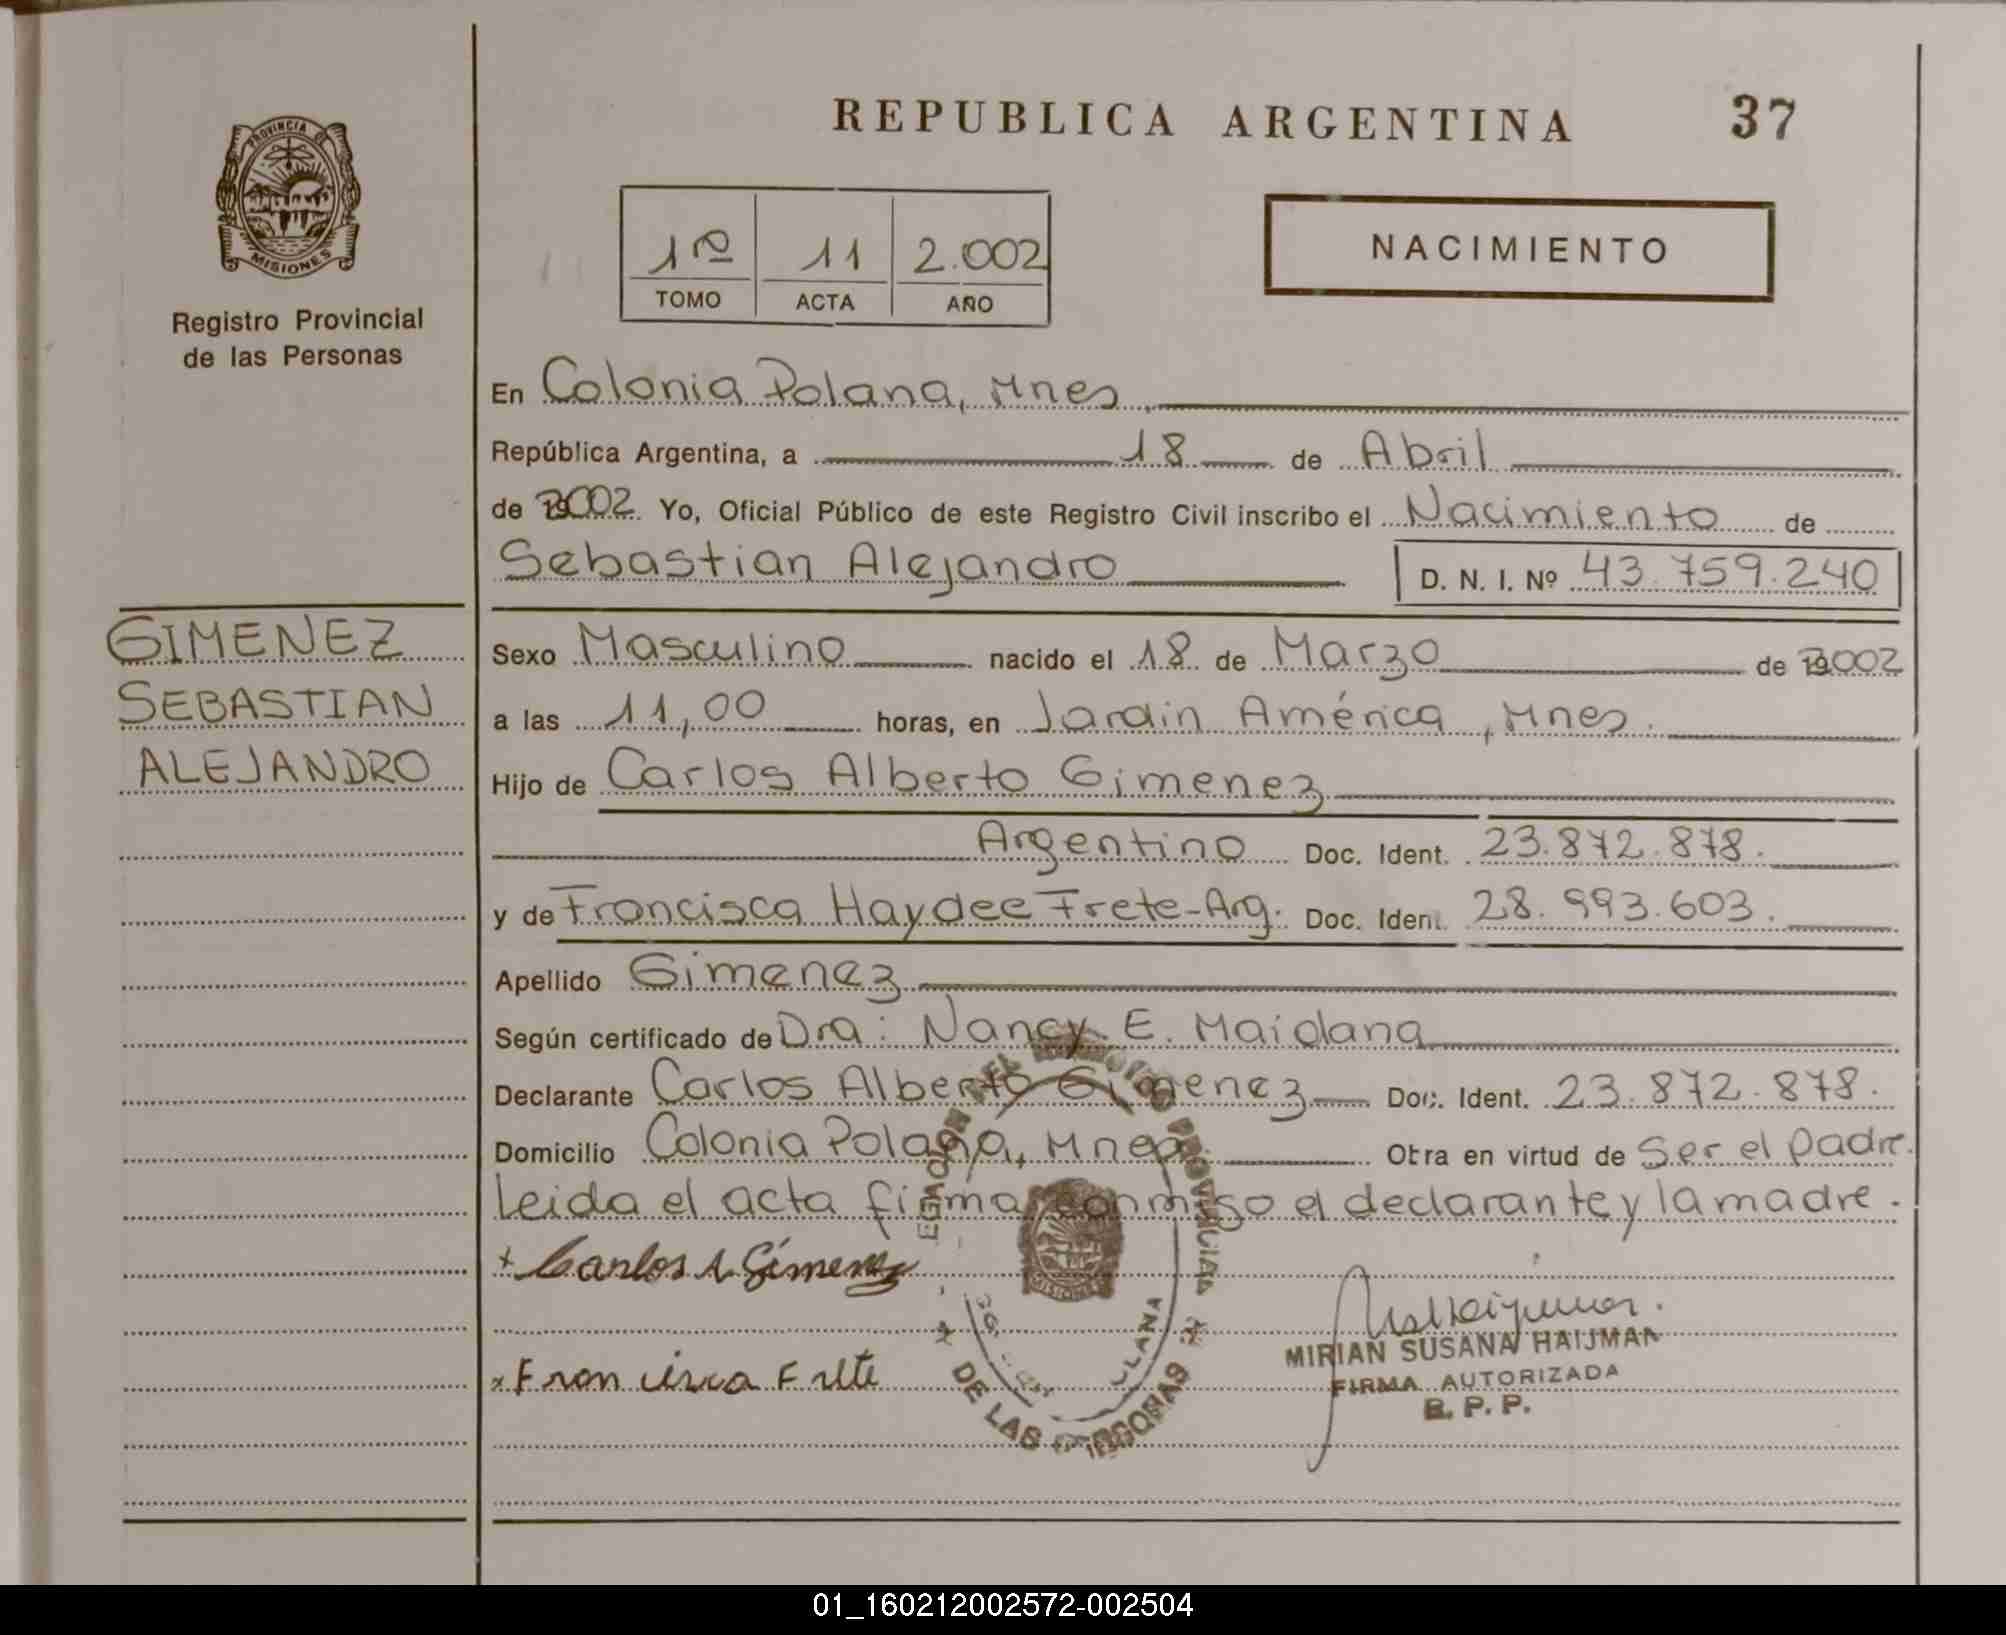 REPUBLICA ARGENTINA 37
PROVINCIA DE
MISIONES
Registro Provincial
de las Personas
1º 11 2.002
TOMO ACTA AÑO
NACIMIENTO
En Colonia Polana, Mnes.
República Argentina, a 18 de Abril
de 2002 Yo, Oficial Público de este Registro Civil inscribo el Nacimiento de
Sebastian Alejandro D. N. I. Nº 43.759.240
GIMENEZ
SEBASTIAN
ALEJANDRO
Sexo Masculino nacido el 18 de Marzo de 2002
a las 11,00 horas, en Jardin América, Mnes.
Hijo de Carlos Alberto Gimenez
Argentino Doc. Ident. 23.872.878.
y de Francisca Haydee Frete-Arg. Doc. Ident. 28.993.603.
Apellido Gimenez
Según certificado de Dra: Nancy E. Maidana
Declarante Carlos Alberto Gimenez Doc. Ident. 23.872.878.
Domicilio Colonia Polana, Mnes Obra en virtud de Ser el padre.
Leida el acta firma conmigo el declarante y la madre.
+ Carlos A Gimenez
x Francisca Frete
DE LAS PERSONAS
MISIONES
MIRIAN SUSANA HAIJMAN
FIRMA AUTORIZADA
R. P. P.
01_160212002572-002504